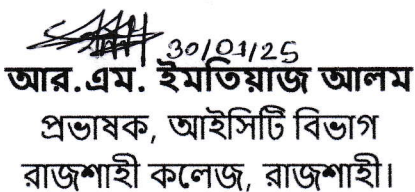 30/01/25
আর.এম. ইমতিয়াজ আলম
প্রভাষক, আইসিটি বিভাগ
রাজশাহী কলেজ, রাজশাহী।